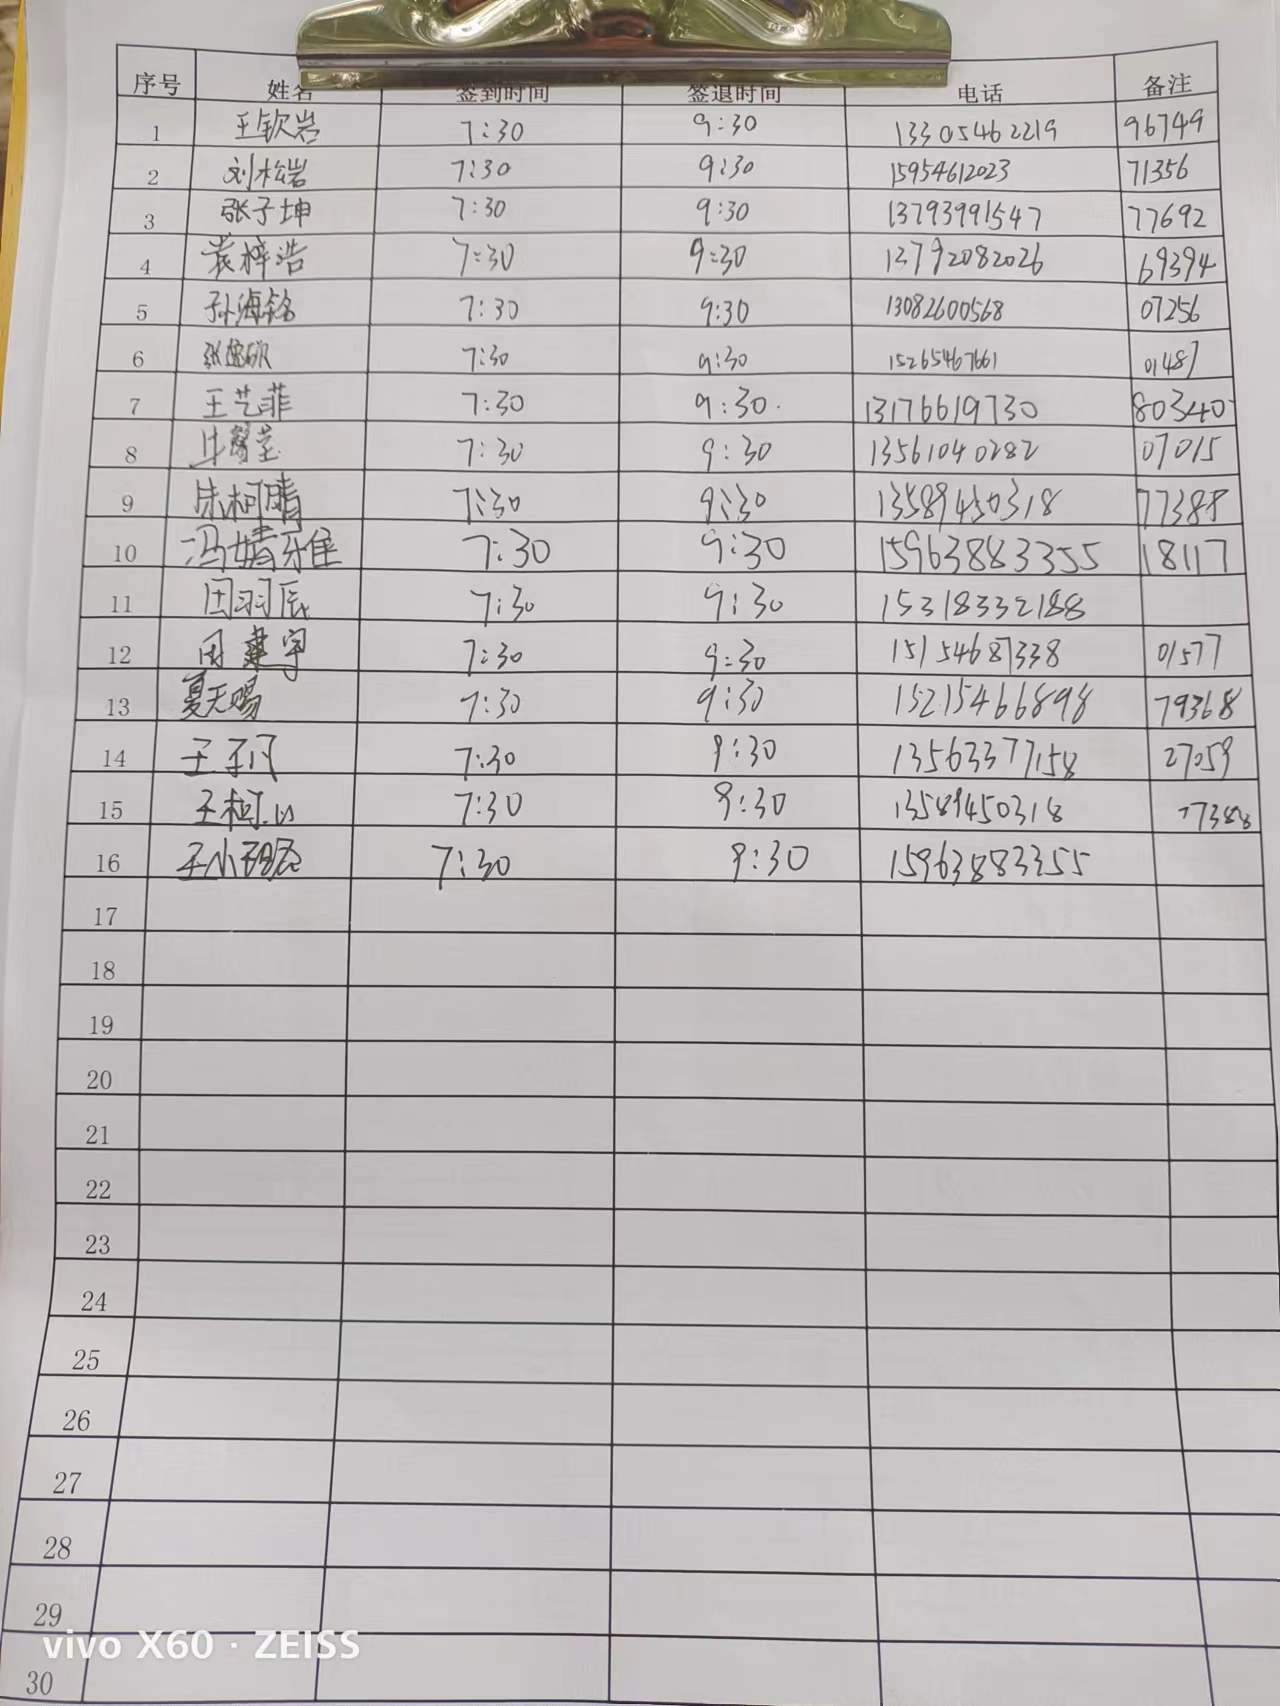 序号 姓名 签到时间 签退时间 电话 备注
1 王钦岩 7:30 9:30 13305462219 96749
2 刘松岩 7:30 9:30 15954612023 71356
3 张子坤 7:30 9:30 13793991547 77692
4 袁梓浩 7:30 9:30 13792082026 69394
5 孙海铭 7:30 9:30 13082600568 07256
6 7:30 9:30 15265467661 01487
7 王艺菲 7:30 9:30 13176619730 80340
8 7:30 9:30 13561040282 07015
9 朱柯晴 7:30 9:30 13589450318 77388
10 冯婧雅 7:30 9:30 15963883355 18117
11 田羽辰 7:30 9:30 15318332188
12 田建宇 7:30 9:30 15154687338 01577
13 夏天赐 7:30 9:30 15215466898 79368
14 王子凡 7:30 9:30 13563377158 27059
15 7:30 9:30 13589450318 77388
16 7:30 9:30 15963883355
17
18
19
20
21
22
23
24
25
26
27
28
29
30
vivo X60 · ZEISS